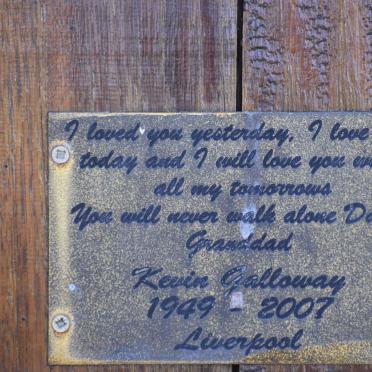 I loved you yesterday, I love
today and I will love you w
all my tomorrows
You will never walk alone D
Granddad
Kevin Galloway
1949 - 2007
Liverpool